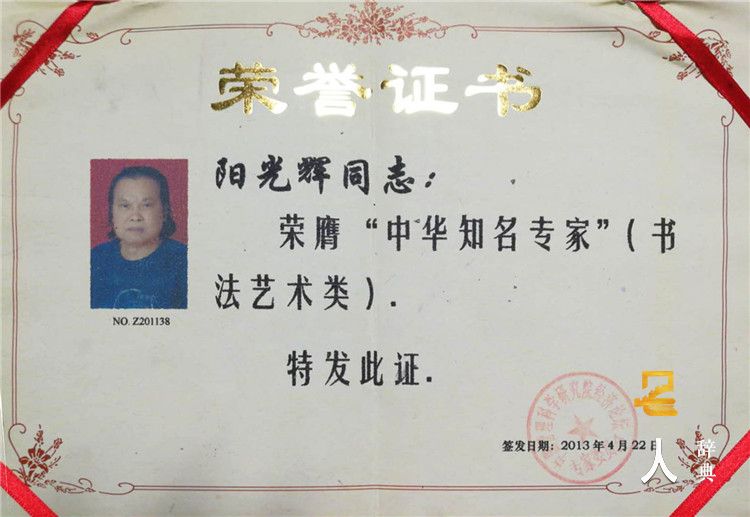 荣誉证书
阳光辉同志：
荣膺“中华知名专家”（书
法艺术类）.
特发此证.
NO. Z201138
签发日期：2013年4月22日
名人
辞典